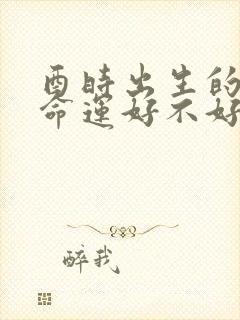 酉時出生的
命運好不好
醉我